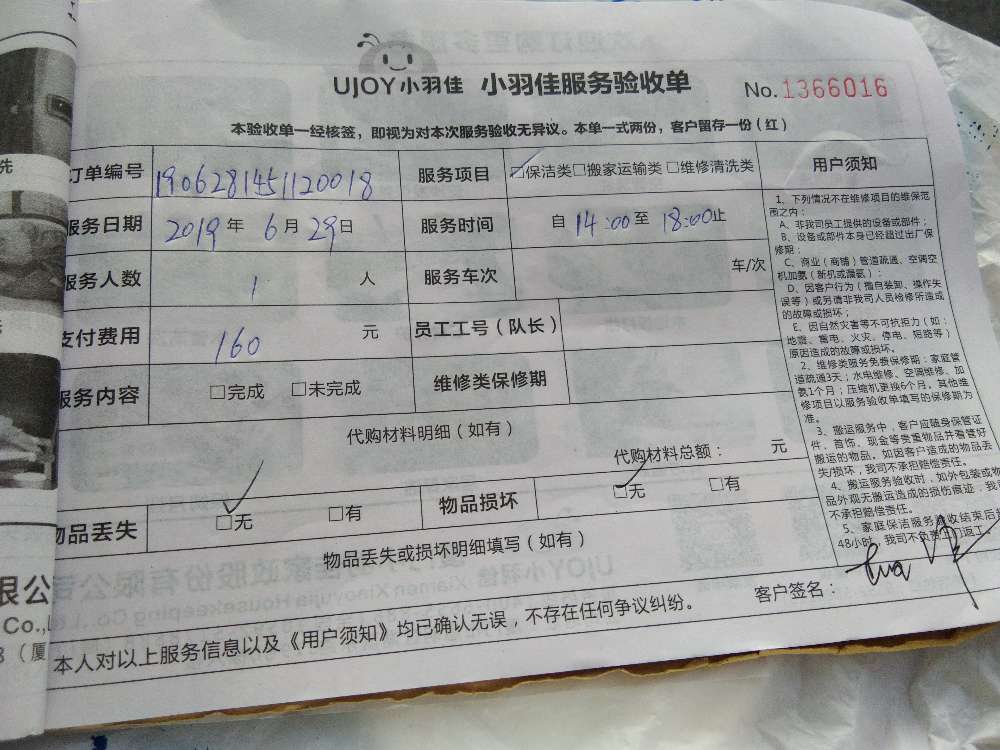 UJOY小羽佳 小羽佳服务验收单 No.1366016
本验收单一经核签，即视为对本次服务验收无异议。本单一式两份，客户留存一份（红）
订单编号 1906281451120018 服务项目 ☑保洁类□搬家运输类 □维修清洗类
服务日期 2019年 6月29日 服务时间 自 14:00至 18:00止
服务人数 1 人 服务车次 车/次
支付费用 160 元 员工工号（队长）
服务内容 □完成 □未完成 维修类保修期
代购材料明细（如有）
代购材料总额： 元
物品丢失 ☑无 □有 物品损坏 ☑无 □有
物品丢失或损坏明细填写（如有）
用户须知
1、下列情况不在维修项目的维保范
围之内：
A、非我司员工提供的设备或部件；
B、设备或部件本身已经超过出厂保
修期；
C、商业（商铺）管道疏通、空调空
机加氨（新机或漏氨）；
D、因客户行为（擅自装卸、操作失
误等）或另请非我司人员检修所造成
的故障或损坏；
E、因自然灾害等不可抗拒力（如：
地震、雷电、火灾、停电、短路等）
原因造成的故障或损坏。
2、维修类服务免费保修期：家庭管
道疏通3天；水电维修、空调维修、加
氨1个月；压缩机更换6个月。其他维
修项目以服务验收单填写的保修期为
准。
3、搬运服务中，客户应随身保管证
件、首饰、现金等贵重物品并看管好
搬运的物品。如因客户造成的物品丢
失/损坏，我司不承担赔偿责任。
4、搬运服务验收时，如外包装或物
品外观无搬运造成的损伤痕迹，我
不承担赔偿责任。
5、家庭保洁服务验收结束后
48小时，我司不负责上门返工
客户签名：
本人对以上服务信息以及《用户须知》均已确认无误，不存在任何争议纠纷。
先
限公
Co.,
（厦